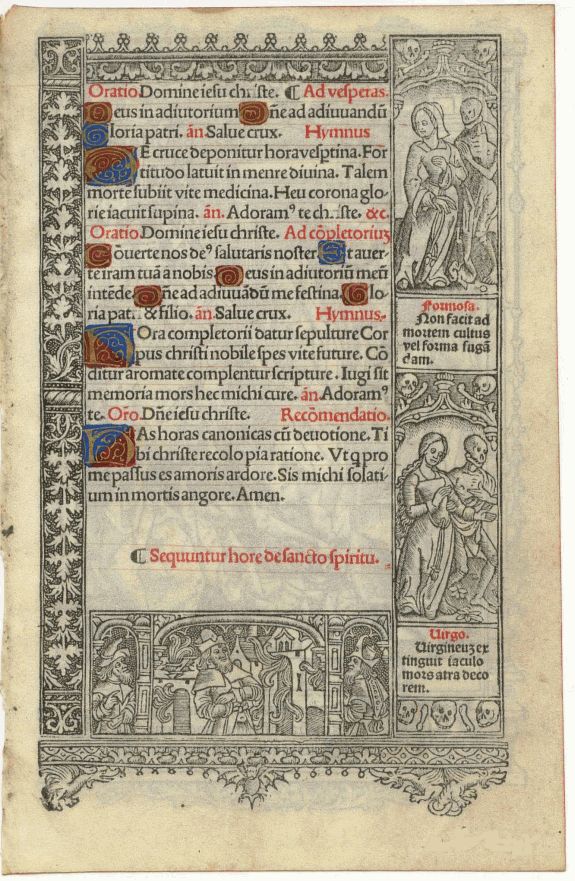 Oratio Domine iesu chꝛiste. ¶ Ad vesperas.
Deus in adiutorium Dñe ad adiuuandũ
Gloria patri. ãn. Salue crux. Hymnus
DE cruce deponitur hora vesptina. For
titudo latuit in menre diuina. Talem
morte subiit vite medicina. Heu corona glo-
rie iacuit supina. ãn. Adoramꝰ te christe. &c.
Oratio Domine iesu christe. Ad cõpletoriuʒ
Cõuerte nos deꝰ salutaris noster Et auer-
te iram tuã a nobis. Deus in adiutoriũ meũ
intẽde. Dñe ad adiuuãdũ me festina. Glo-
ria pat. & filio. ãn. Salue crux. Hymnus.
HOra completorii datur sepulture Cor
pus christi nobile spes vite future. Cõ
ditur aromate complentur scripture. Iugi sit
memoria mors hec michi cure. ãn. Adoramꝰ
te. Oro. Dñe iesu christe. Recõmendatio.
HAs horas canonicas cũ deuotione. Ti
bi christe recolo pia ratione. Vt q pro
me passus es amoris ardore. Sis michi solati-
um in mortis angore. Amen.
¶ Sequuntur hore de sancto spiritu.
Formosa.
Non facit ad
mortem cultus
vel forma fugã
dam.
Uirgo.
Uirgineuʒ ex
tinguit iaculo
mors atra deco
rem.